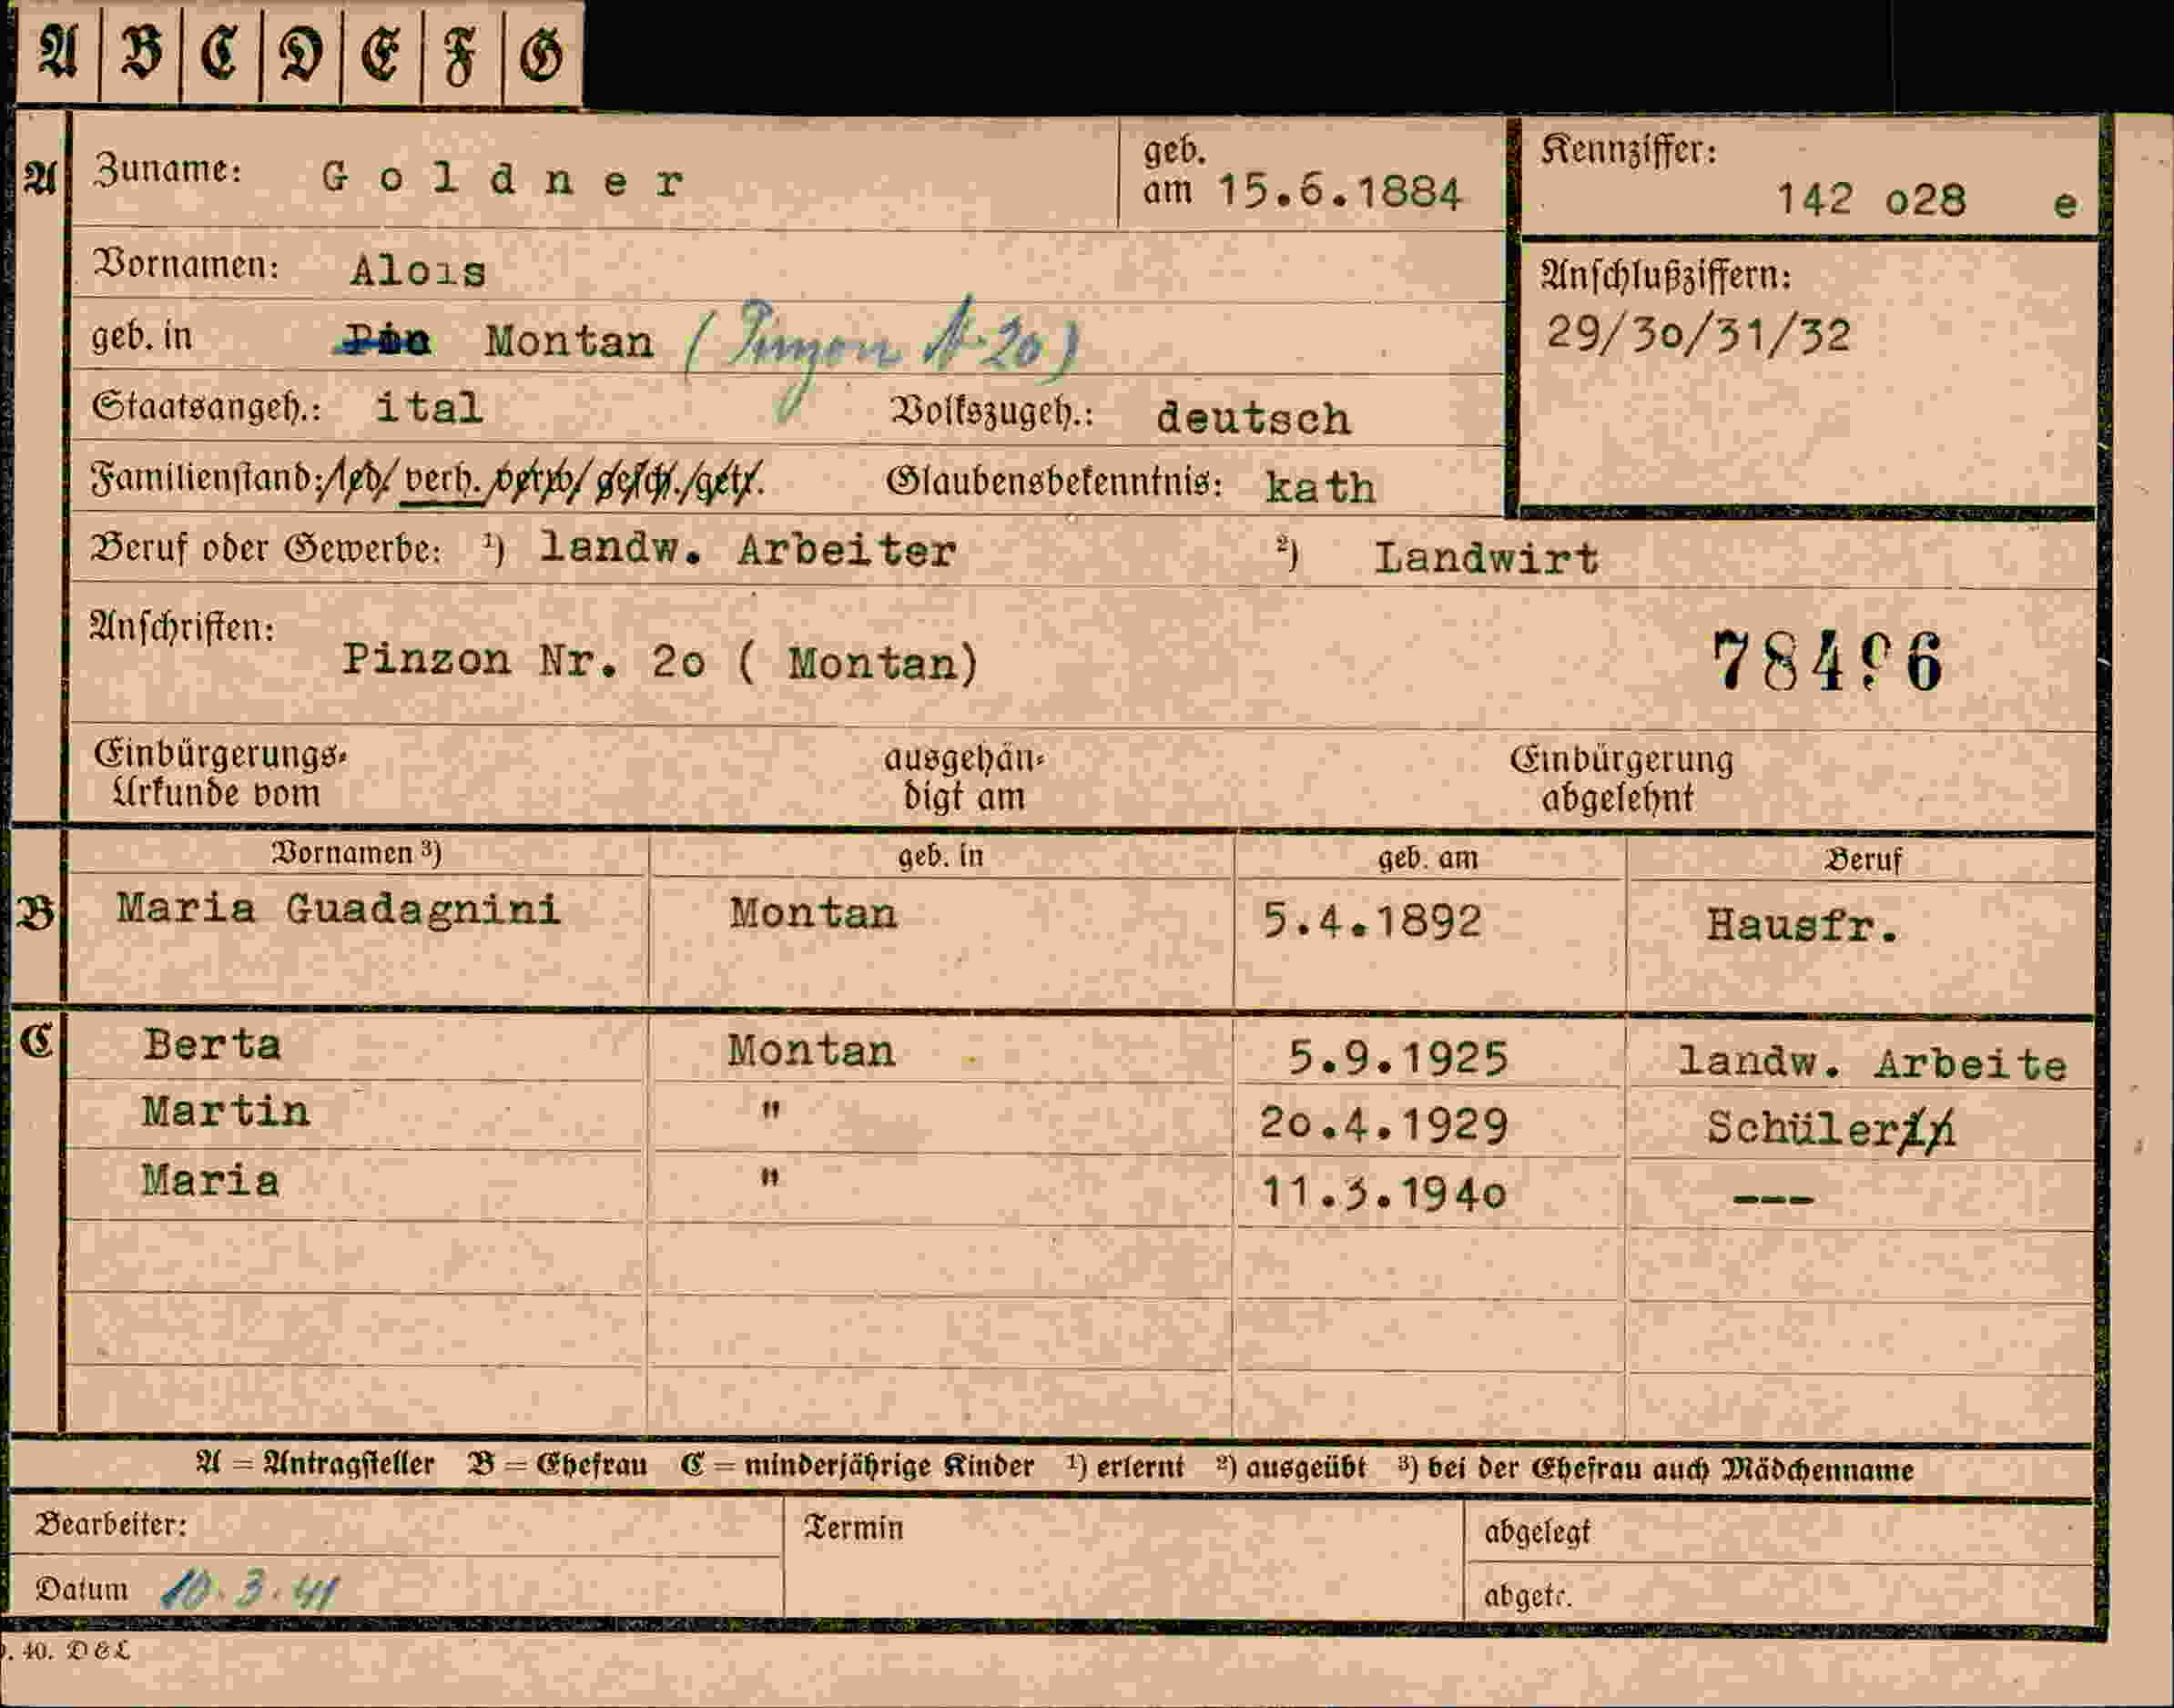 A B C D E F G
A Zuname: Goldner geb. am 15.6.1884 Kennziffer: 142 o28 e
Vornamen: Alois
Anschlußziffern:
29/3o/31/32
geb. in Pin Montan (Pinzon N. 20)
Staatsangeh.: ital Volkszugeh.: deutsch
Familienstand: /led/ verh. /verw/ gesch./getr. Glaubensbekenntnis: kath
Beruf oder Gewerbe: ¹) landw. Arbeiter ²) Landwirt
Anschriften:
Pinzon Nr. 2o ( Montan) 78496
Einbürgerungs-Urkunde vom ausgehändigt am Einbürgerung abgelehnt
Vornamen ³) geb. in geb. am Beruf
B Maria Guadagnini Montan 5.4.1892 Hausfr.
C Berta Montan 5.9.1925 landw. Arbeite
Martin " 2o.4.1929 Schülerin
Maria " 11.3.194o ---
A = Antragsteller B = Ehefrau C = minderjährige Kinder ¹) erlernt ²) ausgeübt ³) bei der Ehefrau auch Mädchenname
Bearbeiter: Termin abgelegt
Datum 10.3.41 abgetr.
. 40. D&L